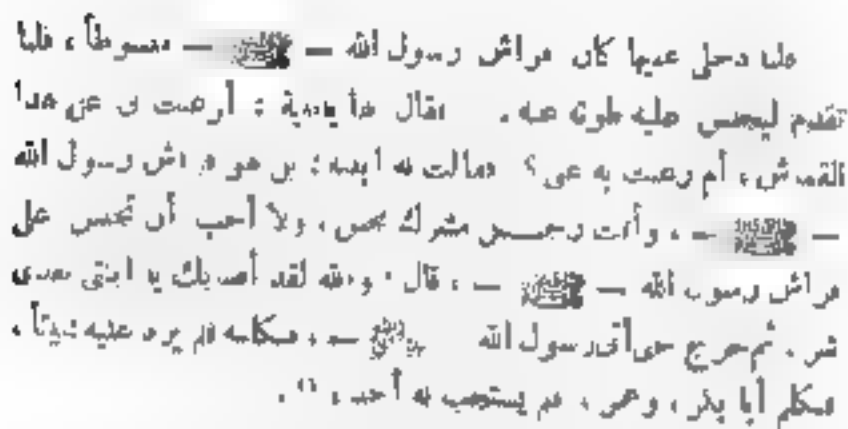 فلما دخل عليها كان فراش رسول الله — ﷺ — مبسوطاً ، فلما
تقدم ليجلس عليه طوته عنه . فقال لها يا بنية : أرغبت بى عن هذا
الفراش ، أم رغبت به عنى ؟ فقالت له ابنته : بل هو فراش رسول الله
— ﷺ — ، وأنت رجل مشرك نجس ، ولا أحب أن تجلس على
فراش رسول الله — ﷺ — ، قال : والله لقد أصابك يا ابنتى بعدى
شر . ثم خرج حتى أتى رسول الله ﷺ — ، فكلمه فلم يرد عليه شيئاً ،
فكلم أبا بكر ، وعمر ، فلم يستجب له أحد ،